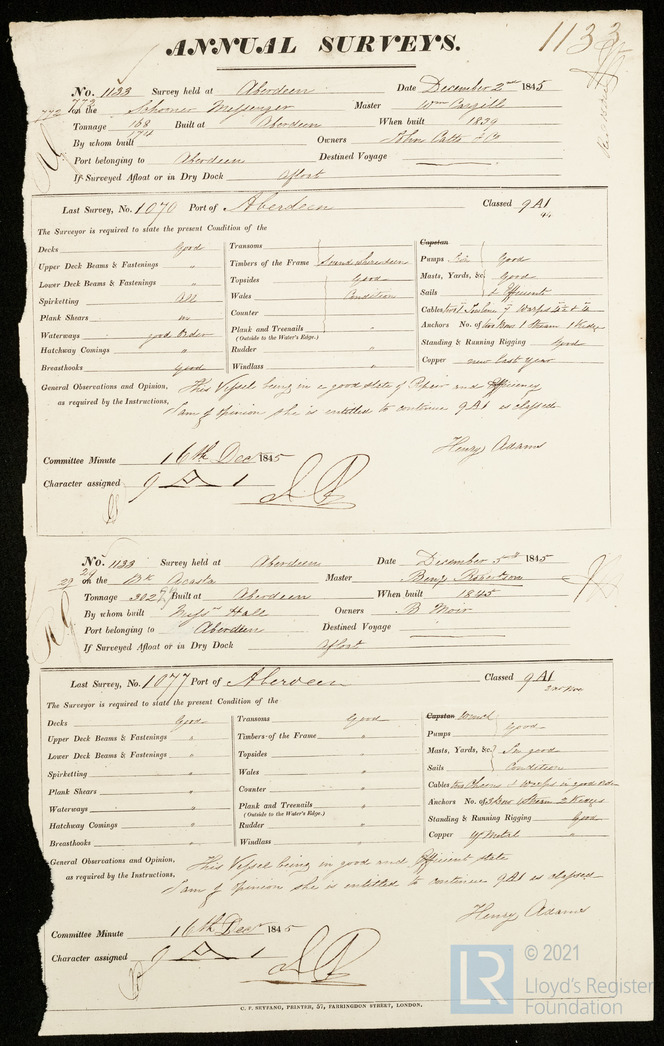 ANNUAL SURVEYS.
1133
No. 1133 Survey held at Aberdeen Date December 2nd 1845
772 on the Schooner Messenger Master Wm Cargill
Tonnage 168 Built at Aberdeen When built 1839
174
By whom built Owners John Catto & Co
Port belonging to Aberdeen Destined Voyage
If Surveyed Afloat or in Dry Dock Afloat
Last Survey, No. 1070 Port of Aberdeen Classed 9 A1
The Surveyor is required to state the present Condition of the
Decks Good
Upper Deck Beams & Fastenings "
Lower Deck Beams & Fastenings "
Spirketting All
Plank Shears in
Waterways good order
Hatchway Comings "
Breasthooks Good
Transoms
Timbers of the Frame
Topsides Good
Wales Condition
Counter
Plank and Treenails "
(Outside to the Water's Edge.)
Rudder "
Windlass "
Capstan
Pumps Good
Masts, Yards, &c. Good
Sails & Efficient
Cables Warps
Anchors No. of two Bower 1 Stream 1 Kedge
Standing & Running Rigging Good
Copper new last year
General Observations and Opinion, This Vessel being in a good state of Repair and Efficiency
as required by the Instructions. I am of opinion she is entitled to continue 9 A1 as classed
Henry Adams
Committee Minute 16th Dec 1845
Character assigned 9 A 1
No. 1133 Survey held at Aberdeen Date December 5th 1845
29 on the Bk Acasta Master Benj Robertson
Tonnage 302 Built at Aberdeen When built 1845
By whom built Messrs Hall Owners B Moir
Port belonging to Aberdeen Destined Voyage
If Surveyed Afloat or in Dry Dock Afloat
Last Survey, No. 1077 Port of Aberdeen Classed 9 A1
The Surveyor is required to state the present Condition of the
Decks Good
Upper Deck Beams & Fastenings "
Lower Deck Beams & Fastenings "
Spirketting "
Plank Shears "
Waterways "
Hatchway Comings "
Breasthooks "
Transoms Good
Timbers of the Frame "
Topsides "
Wales "
Counter "
Plank and Treenails "
(Outside to the Water's Edge.)
Rudder "
Windlass "
Capstan Winch
Pumps Good
Masts, Yards, &c. In good
Sails Condition
Cables two Chains & Warps in good
Anchors No. of 3 Bower 1 Stream 2 Kedges
Standing & Running Rigging Good
Copper Y Metal "
General Observations and Opinion, This Vessel being in good and Efficient state
as required by the Instructions. I am of opinion she is entitled to continue 9 A1 as classed
Henry Adams
Committee Minute 16th Decr 1845
Character assigned 9 A 1
C. F. SEYFANG, PRINTER, 57, FARRINGDON STREET, LONDON.
LR © 2021
Lloyd's Register
Foundation